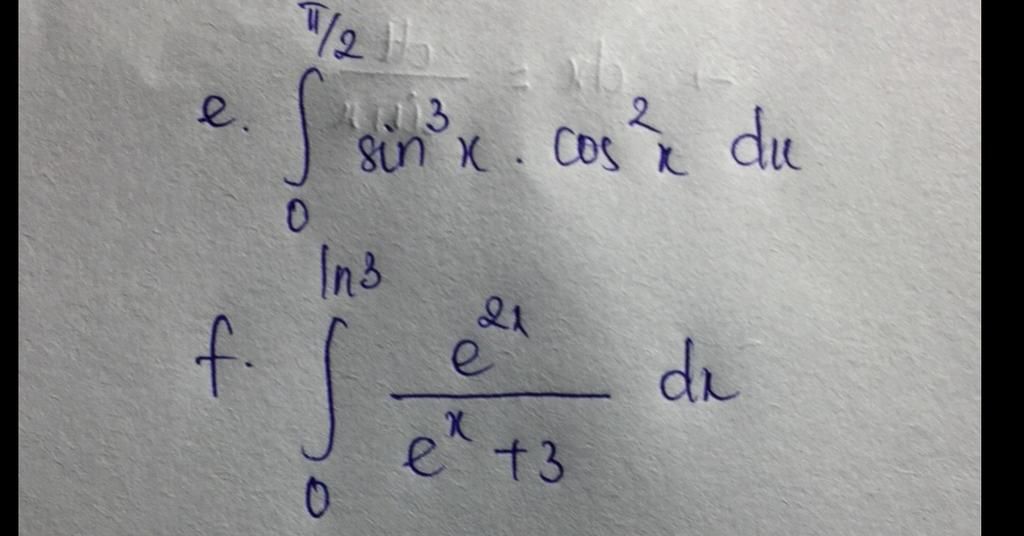 e. ∫₀^{π/2} sin³x . cos²x dx
f. ∫₀^{ln3} e^{2x} / (e^x + 3) dx